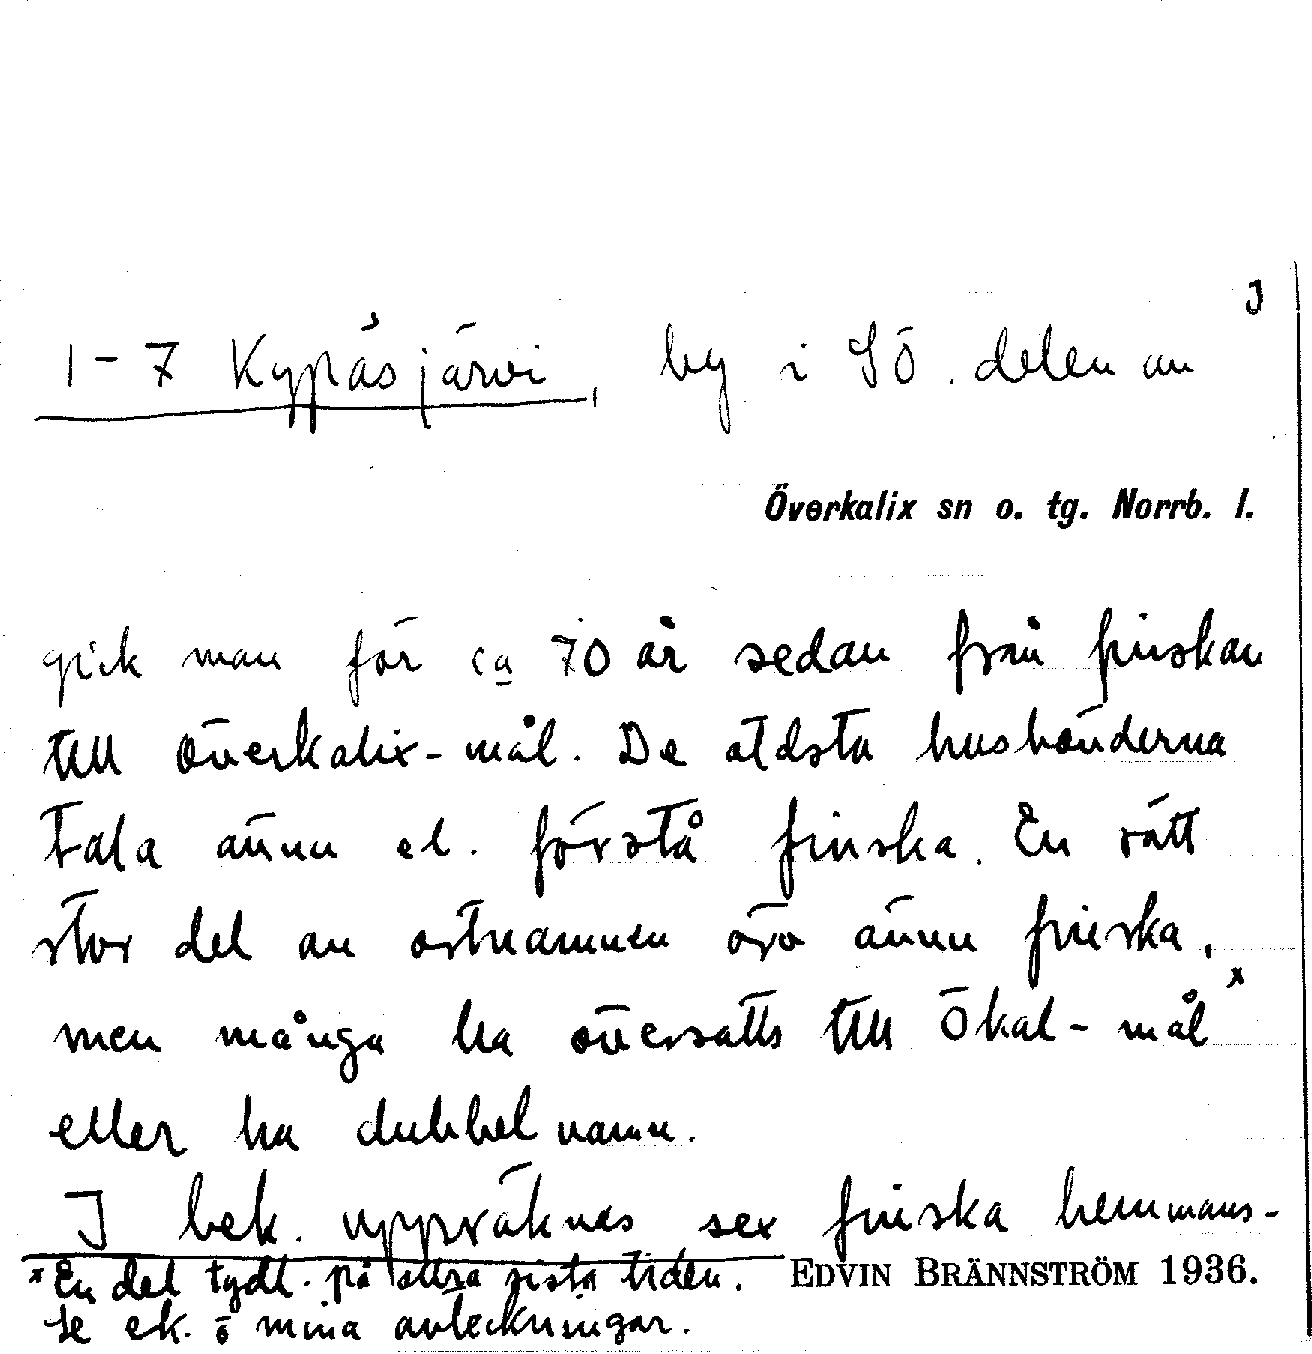 J
1-7 Kypåsjärvi, by i SÖ. delen av
Överkalix sn o. tg. Norrb. l.
gick man för ca 70 år sedan från finskan
till Överkalix-mål. De äldsta husbönderna
tala ännu el. förstå finska. En rätt
stor del av ortnamnen äro ännu finska,
men många ha översatts till Ökal-mål x
eller ha dubbelnamn.
I bek. uppräknas sex finska hemmans-
x En del tydl. på allra sista tiden. EDVIN BRÄNNSTRÖM 1936.
Se ek. ö mina avteckningar.